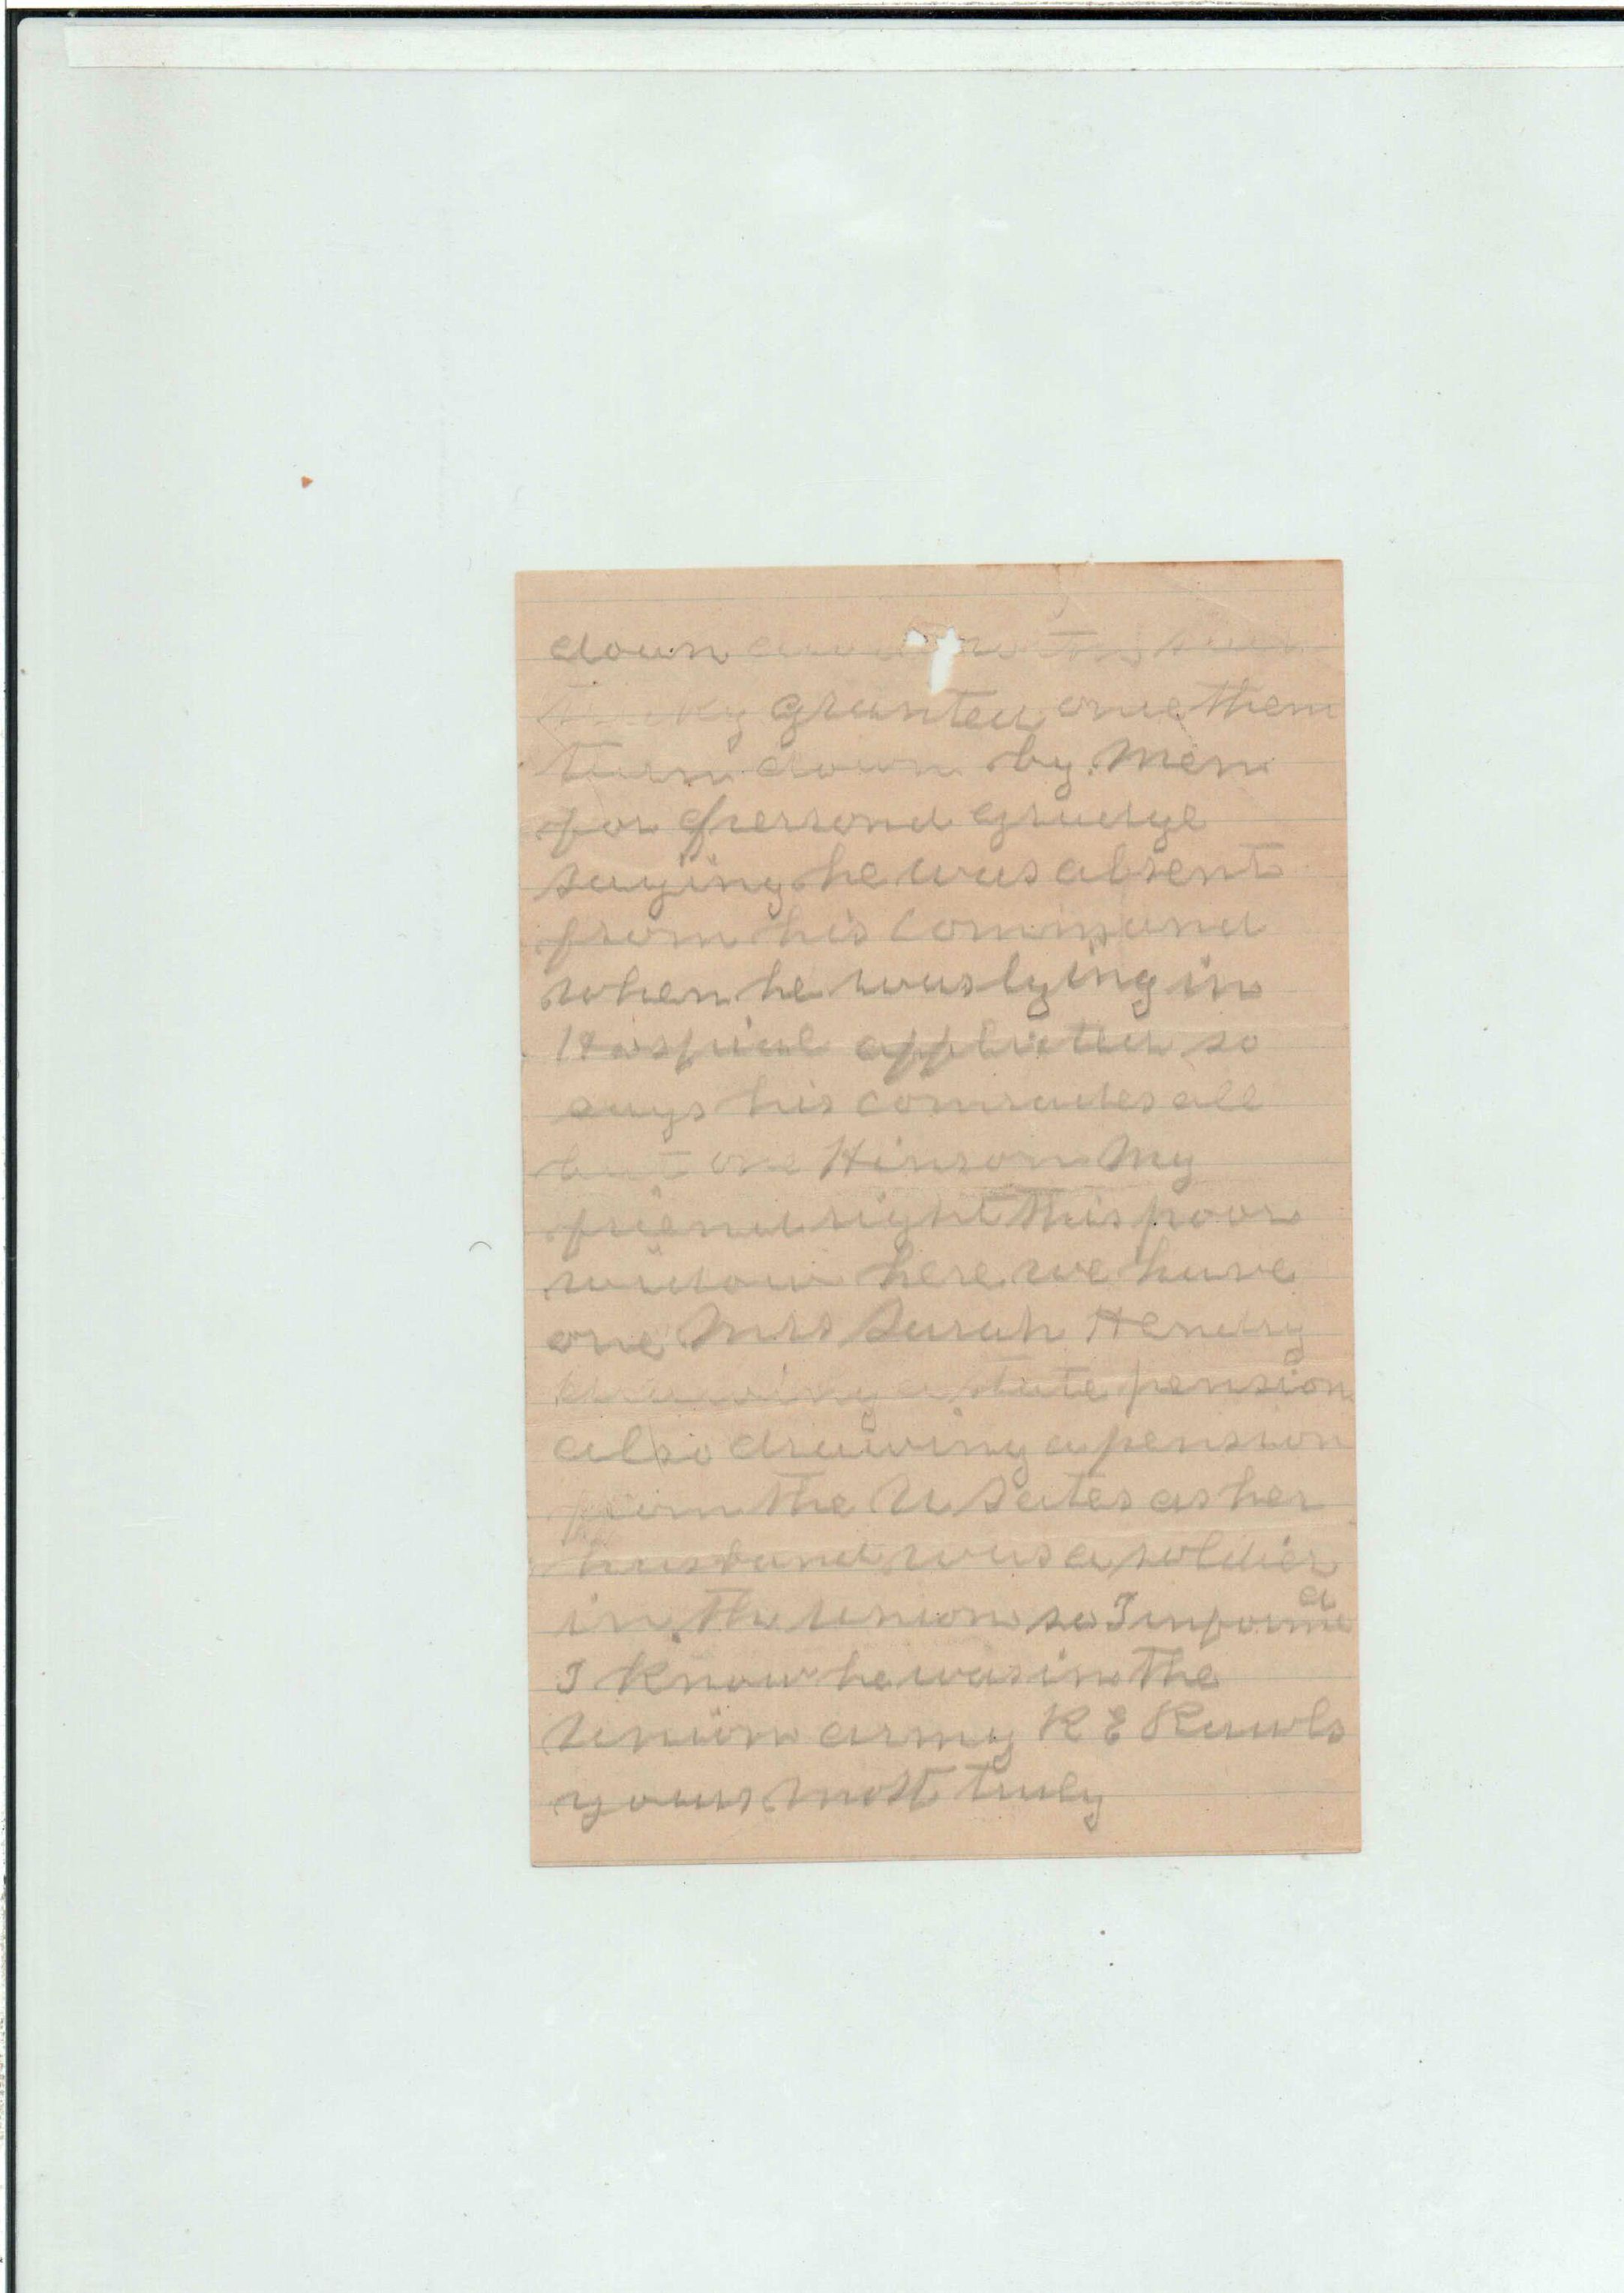 down
granted one them
turn down by men
for personel grudge
saying he was absent
from his command
when he was lying in
Hospial so
says his comrades all
but one Hinson My
friend right this poor
widow here we have
one Mrs Sarah Hendry
drawing a state pension
also drawing a pension
from the U Sates as her
husband was a soldier
in the Union so I informed
I know he was in the
Union army R E Rawls
yours most truly